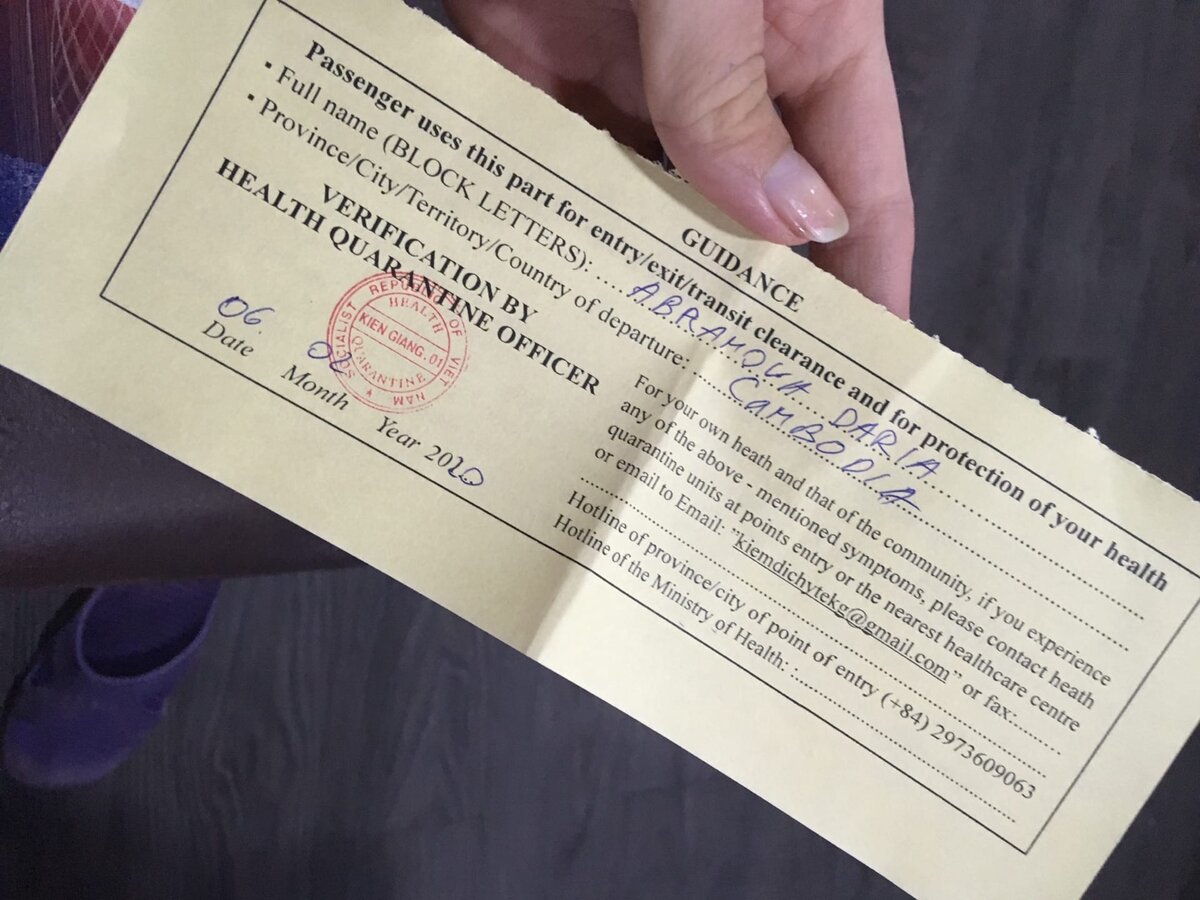 GUIDANCE
Passenger uses this part for entry/exit/transit clearance and for protection of your health
▪ Full name (BLOCK LETTERS): ABRAMOVA DARIA
▪ Province/City/Territory/Country of departure: CAMBODIA
VERIFICATION BY
HEALTH QUARANTINE OFFICER
SOCIALIST REPUBLIC OF VIET NAM
HEALTH
KIEN GIANG. 01
QUARANTINE
06
Date Month Year 2020
For your own heath and that of the community, if you experience
any of the above - mentioned symptoms, please contact heath
quarantine units at points entry or the nearest healthcare centre
or email to Email: "kiemdichytekg@gmail.com" or fax:
Hotline of province/city of point of entry (+84) 2973609063
Hotline of the Ministry of Health: